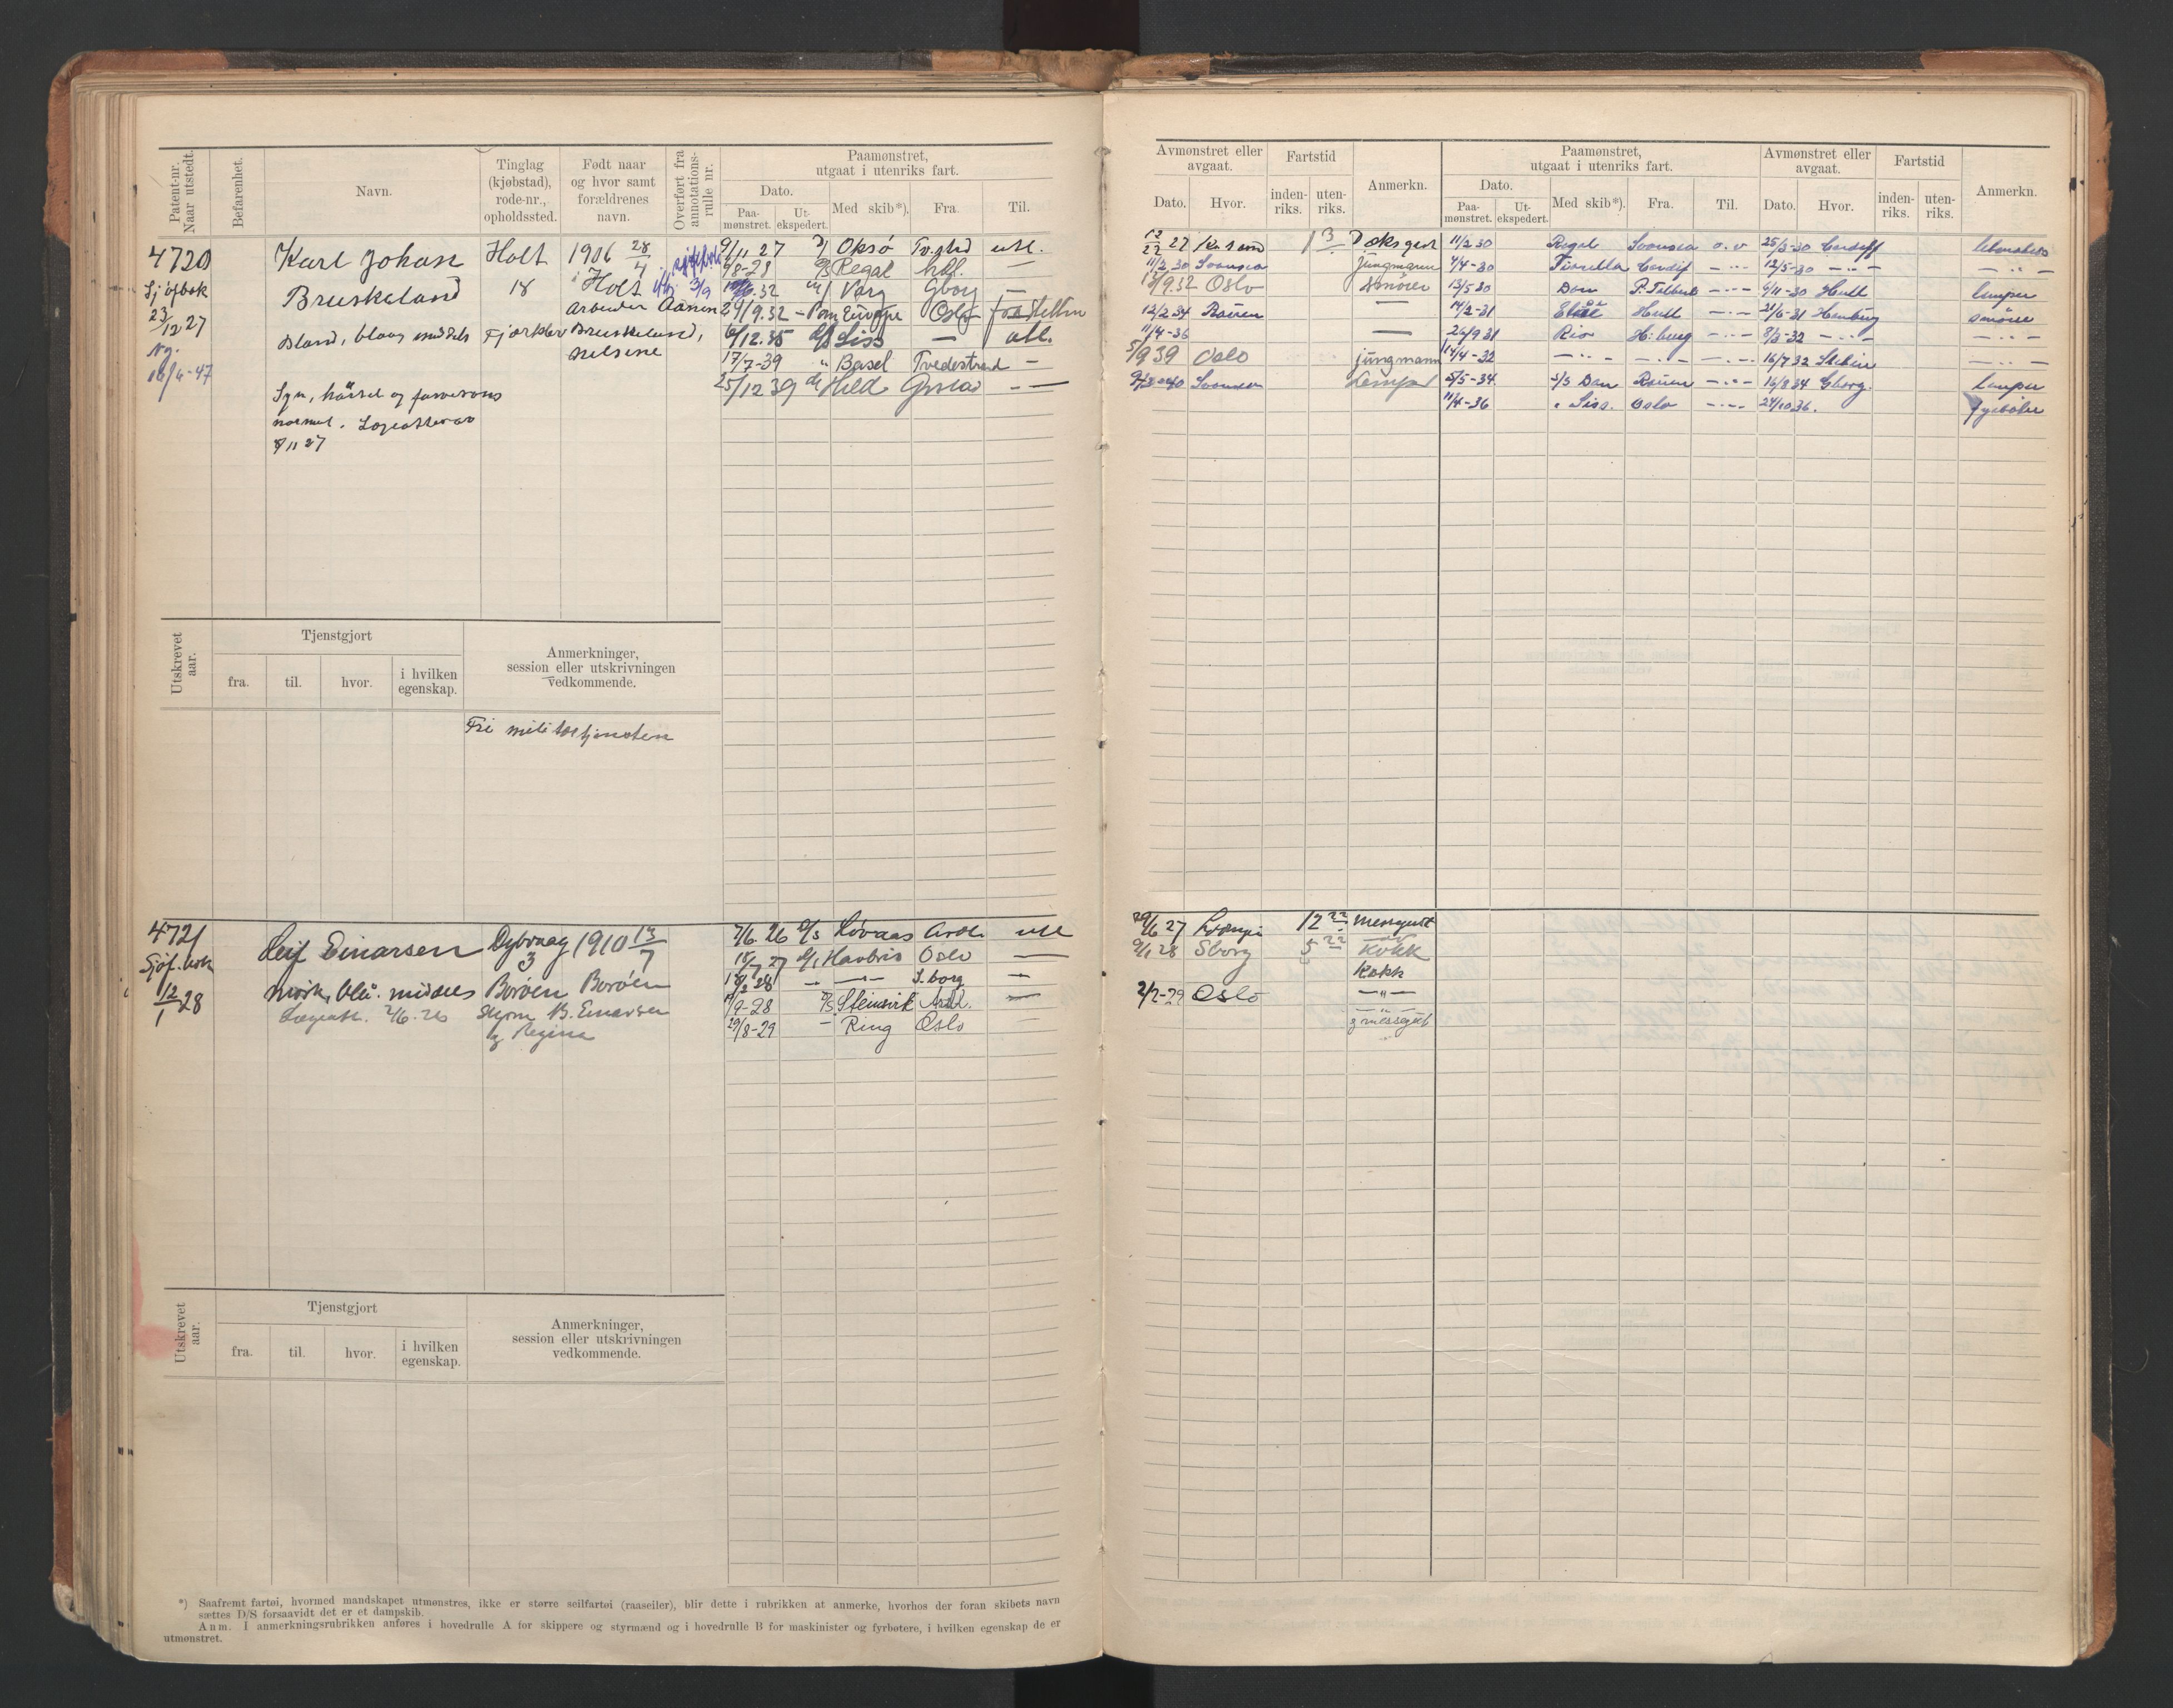 Patent-nr. Naar utstedt.
Befarenhet.
Navn.
Tinglag (kjøbstad), rode-nr., opholdssted.
Født naar og hvor samt forældrenes navn.
Overført fra annotations-rulle nr.
Paamønstret, utgaat i utenriks fart.
Dato.
Paa-mønstret.
Ut-ekspedert.
Med skib*).
Fra.
Til.
4720
Sjøfbok
23/12 27
Ny.
Karl Johan
Bruskeland
Blond, blaa, middels
Syn, hørsel og farvesans
normal.
9/11 27
Holt
18
Fjærkleiv
1906 28/4
i Holt
Arbeider Aanen
Bruskeland,
Nelsine
9/11 27 Oksø Tv.strd utl.
4/8-28 D/S Regal Ardl. —
Varg Gborg —
29/9.32 – Europe Oslo
6/12.35 D/S Siss — utl.
17/7-39 " Basel Tvedestrand —
25/12 39 Hild —
Utskrevet aar.
Tjenstgjort
fra.
til.
hvor.
i hvilken egenskap.
Anmerkninger, session eller utskrivningen vedkommende.
Fri militærtjenesten
4721
Sjøf.bok
12/1 28
Leif Einarsen
mørk, blå. middels
Lægeatt. 2/6.26
Dybvaag
3
Borøen
1910 13/7
Borøen
Styrm B. Einarsen
og Regina
2/6.26 D/S Høvaas Ardl. utl
15/7 27 Havbris Oslo —
— S.borg —
/9-28 D/S Steinsvik Ardl. —
29/8-29 – Ring Oslo
Utskrevet aar.
Tjenstgjort
fra.
til.
hvor.
i hvilken egenskap.
Anmerkninger, session eller utskrivningen vedkommende.
*) Saafremt fartøi, hvormed mandskapet utmønstres, ikke er større seilfartøi (raaseiler), blir dette i rubrikken at anmerke, hvorhos der foran skibets navn
sættes D/S forsaavidt det er et dampskib.
Anm. I anmerkningsrubrikken anføres i hovedrulle A for skippere og styrmænd og i hovedrulle B for maskinister og fyrbøtere, i hvilken egenskap de er
utmønstret.
Avmønstret eller avgaat.
Dato.
Hvor.
Fartstid
inden-riks.
uten-riks.
Anmerkn.
Paamønstret, utgaat i utenriks fart.
Dato.
Paa-mønstret.
Ut-ekspedert.
Med skib*).
Fra.
Til.
Avmønstret eller avgaat.
Dato.
Hvor.
Fartstid
inden-riks.
uten-riks.
Anmerkn.
Kr.sand Dæksgut
11/2 30 Swansea Jungmann
Oslo Smører
12/2 34 Rouen —
11/4-36 —
5/9 39 Oslo jungmann
Swansea Lemper
11/2 30 Regal Swansea 25/3-30 Cardiff
4/4-30 Fiorella Cardif —"— 12/5-30 —"— —"—
13/5 30 Dan P. Talbot —"— 9/11-30 Hull lemper
14/2-31 Hull —"— 21/6-31 Hamburg smører
26/9 31 Rio H.burg —"— 8/3-32 —"— —"—
14/4-32 —"— —"— —"— 16/7 32 —"—
5/5-34 S/S Dan Rouen —"— 16/8 34 Gborg. lemper
11/4-36 " Siss. Oslo —"— 24/10 36. fyrbøter
29/6 27 12 22 messgutt
9/1 28 Sborg 5 22 Kokk
Kokk
2/2-29 Oslo —"—
—"—
g messegut